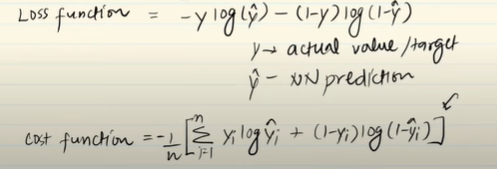 Loss function = -y log(ŷ) - (1-y) log(1-ŷ)
y→ actual value/target
ŷ - NN prediction
cost function = -1/n [ n Σ i=1 yi log ŷi + (1-yi) log(1-ŷi) ]